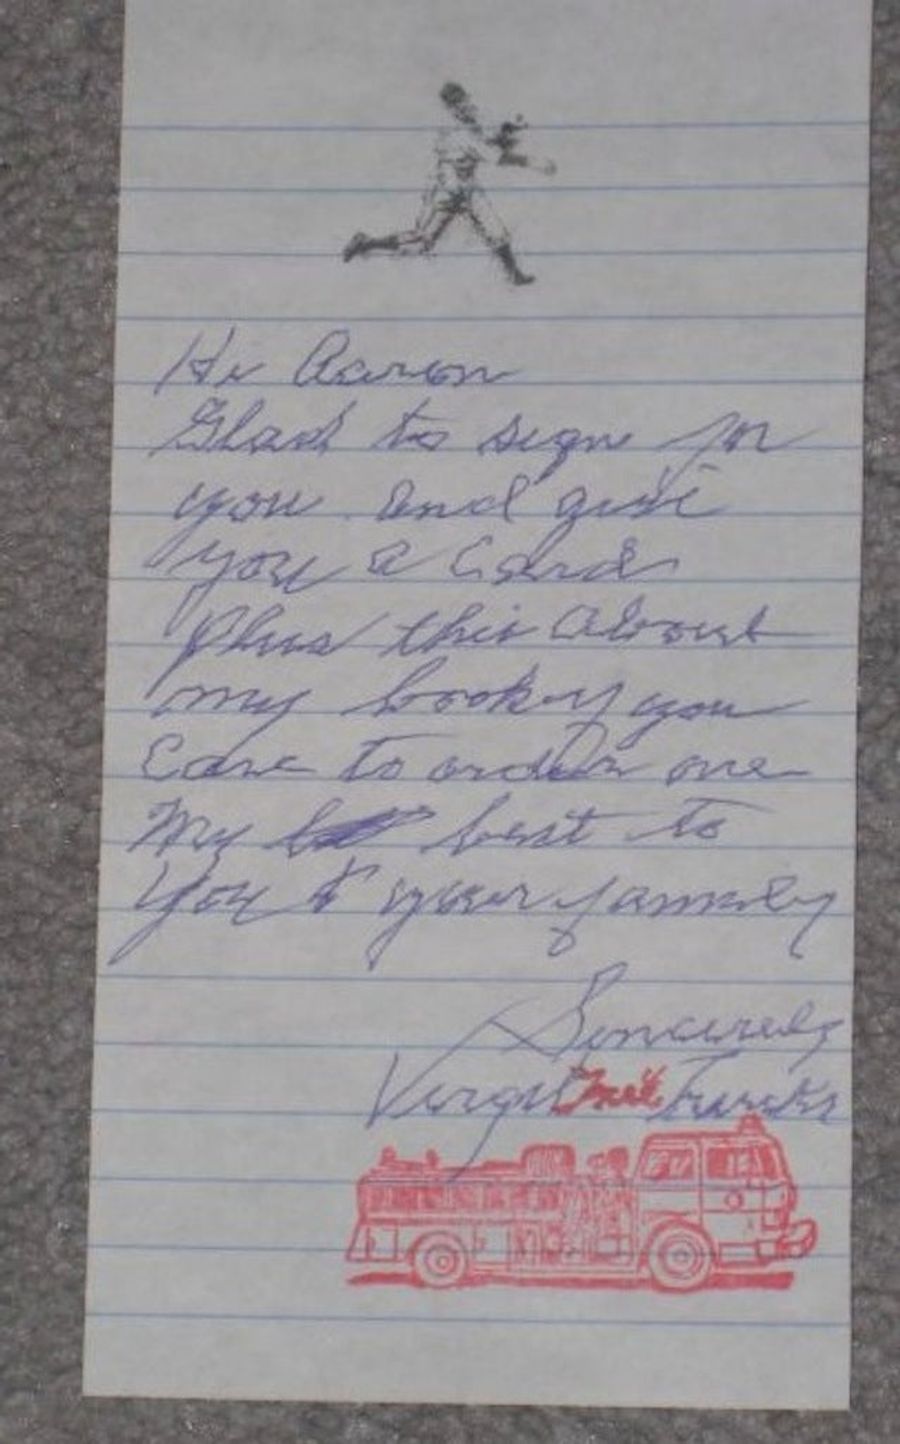 Hi Aaron
Glad to sign for
you and give
you a Card
Plus this about
my book if you
Care to order one
My best to
You & your family
Sincerely
Virgil "Fire" Trucks